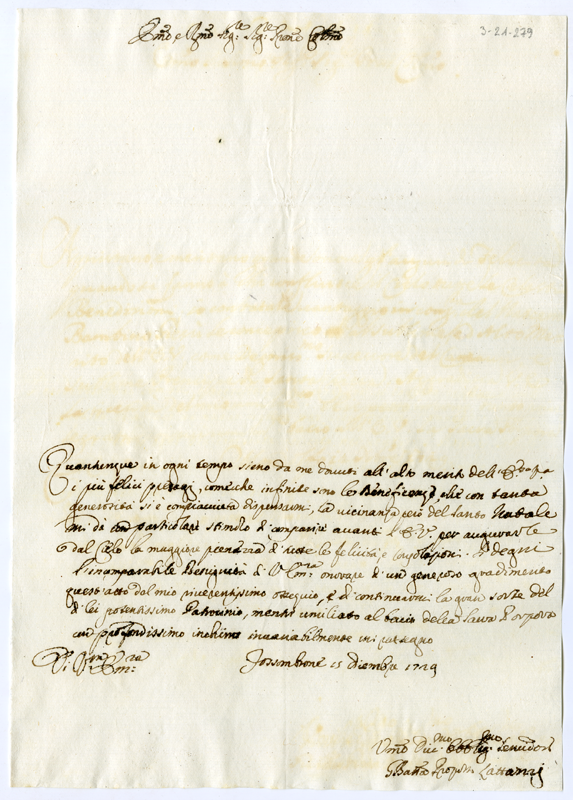 3-21-279
Emo e Rmo Sigre Sigre Prone Colmo
Quantunque in ogni tempo sieno da me dovuti all'alto merito dell'E.
i più felici presagi, come che infinite sono le Beneficenze, che con tanta
generosità si è compiacciuta dispensarmi, la vicinanza però del Santo Natale
mi dà con particolare stimolo di comparire avanti l'E.V. per augurarle
dal Cielo la maggiore pienezza di tutte le felicità e consolazioni. Si degni
l'incomparabile Benignità di V. Emza onorare d'un generoso gradimento
quest'atto del mio riverentissimo ossequio, e di continuarmi la gran sorte del
di lei potentissimo Patrocinio, mentre umiliato al bacio della Sacra Porpora
con profondissimo inchino invariabilmente mi rassegno
Di Vra Emza
Fossombrone 15 Diembre 1729
Umo Divmo Obbligmo Servidore
GBatta Lattanzj